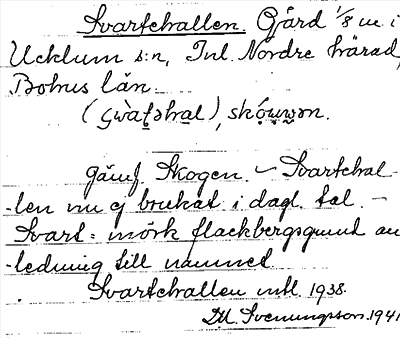 Svartehallen. Gård 1/8 m. i
Ucklum s:n, Inl. Nordre härad,
Bohus län.
(swàṭəhạl), skǫ́wwən.
jämf. Skogen. – Svartehal-
-len nu ej brukat i dagl. tal. –
Svart = mörk flackbergsgrund an
-ledning till namnet.
Svartehallen intl. 1938.
M. Svenungsson. 1941